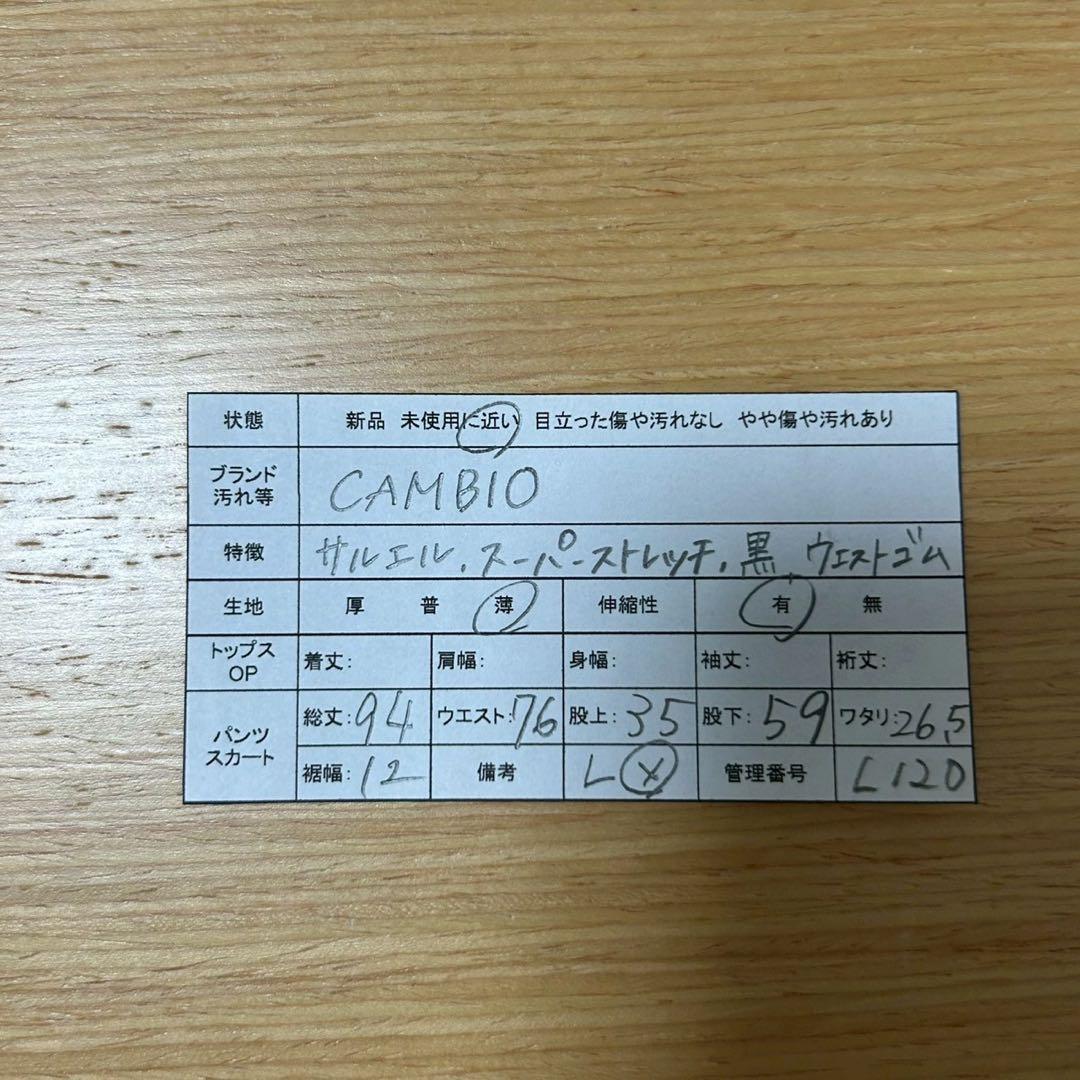 状態 新品 未使用に近い 目立った傷や汚れなし やや傷や汚れあり
ブランド
汚れ等 CAMBIO
特徴 サルエル、スーパーストレッチ、黒 ウエストゴム
生地 厚 普 薄 伸縮性 有 無
トップス
OP 着丈: 肩幅: 身幅: 袖丈: 裄丈:
パンツ
スカート 総丈:94 ウエスト:76 股上:35 股下:59 ワタリ:26,5
裾幅:12 備考 L 管理番号 L120